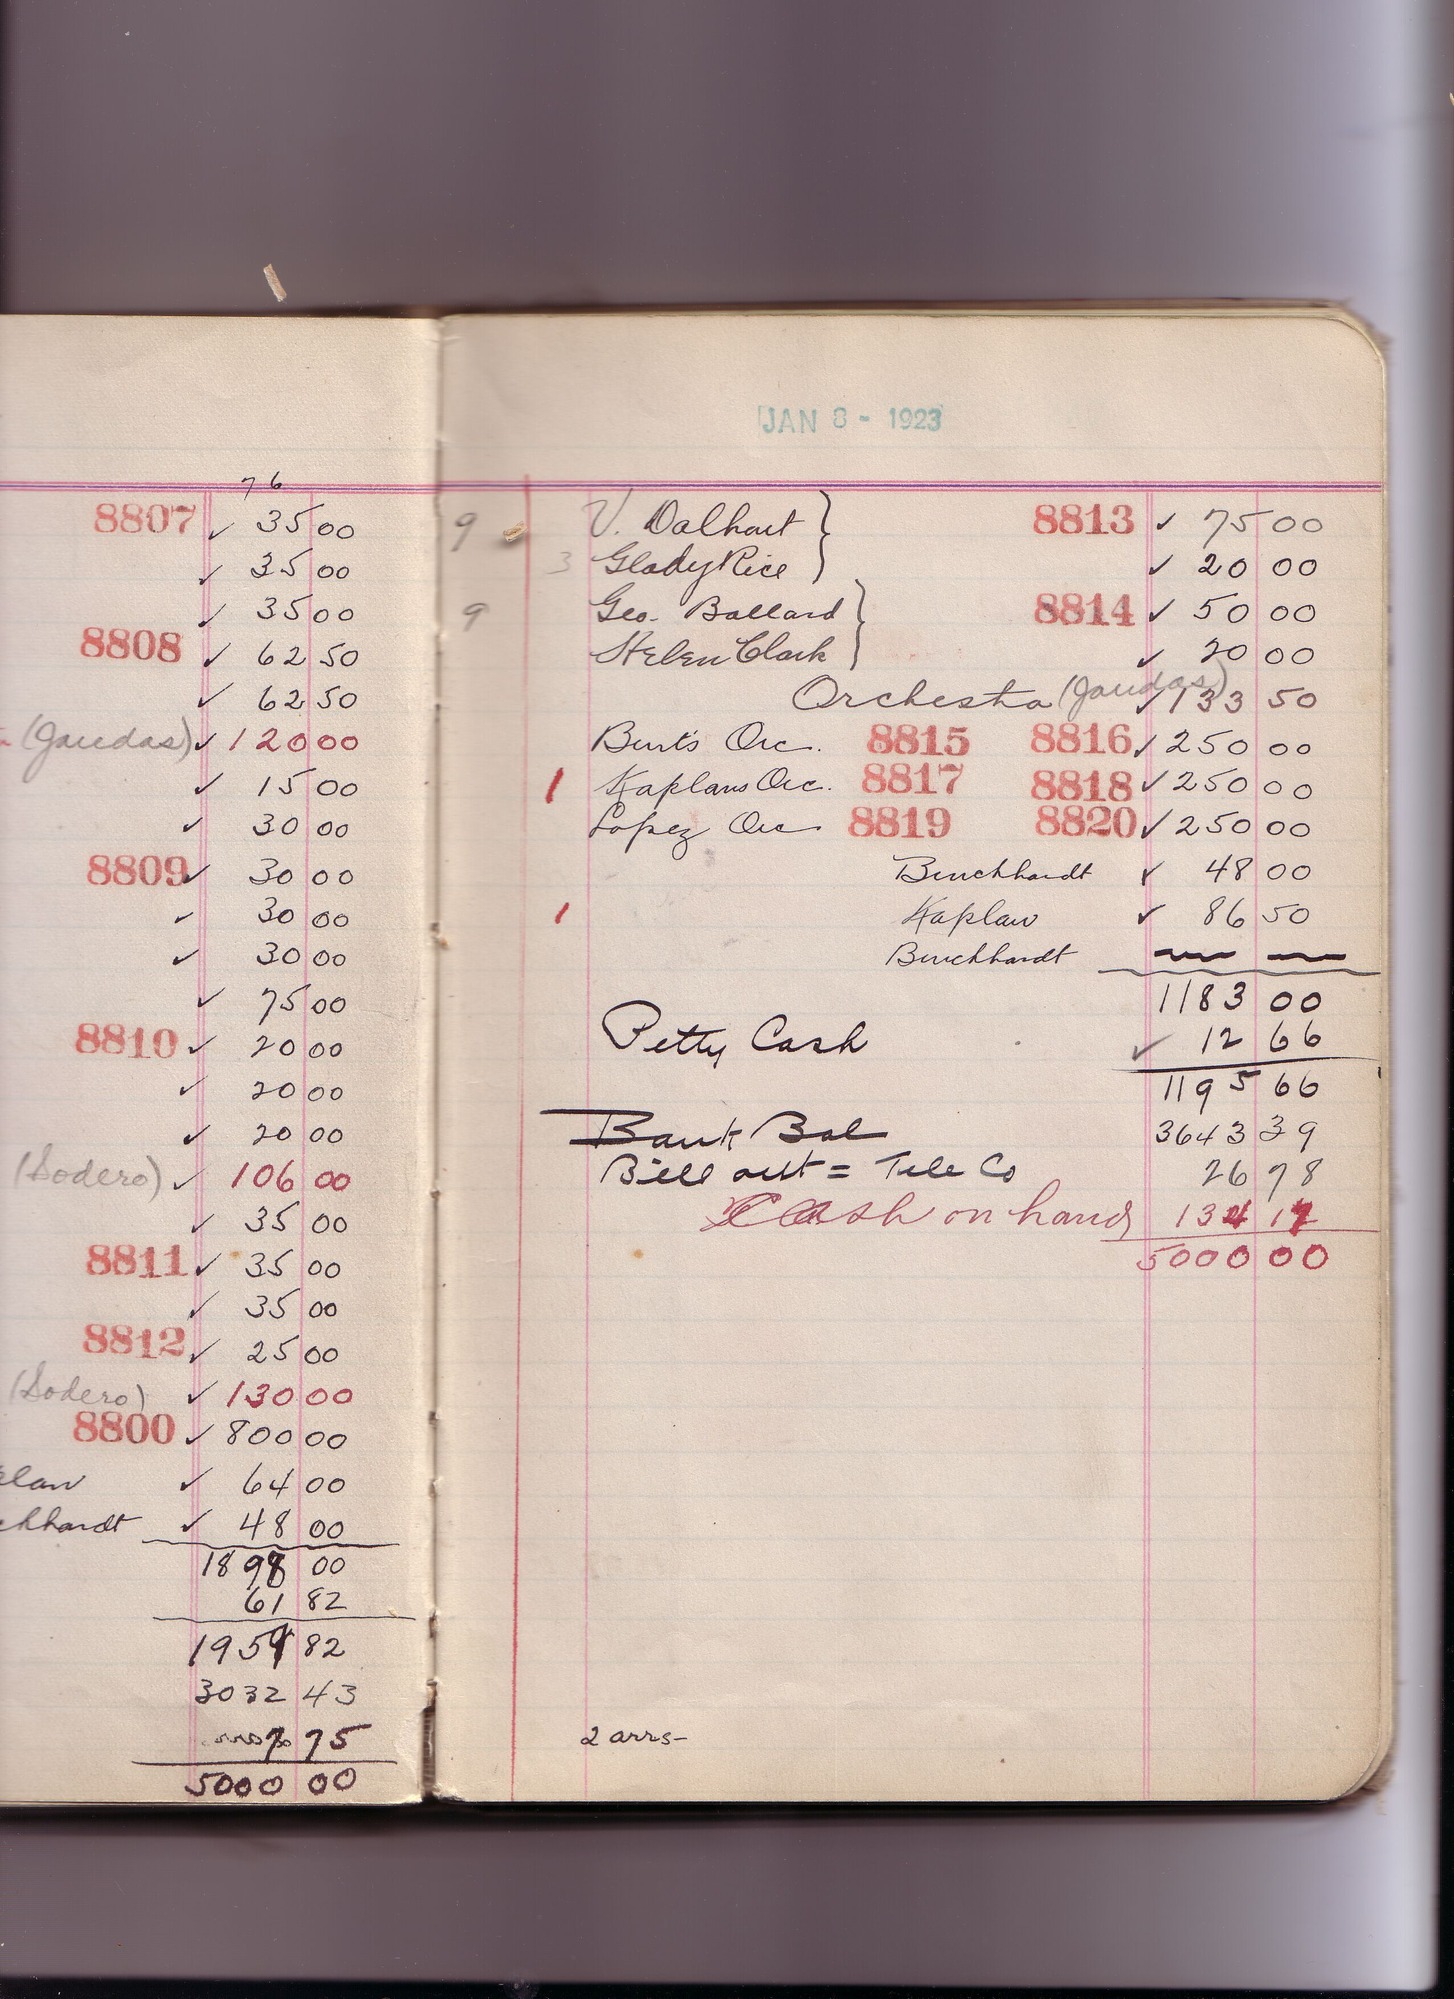 76
8807 ✓ 35 00
✓ 35 00
✓ 35 00
8808 ✓ 62 50
✓ 62 50
(Jaudas) ✓ 120 00
✓ 15 00
✓ 30 00
8809 ✓ 30 00
✓ 30 00
✓ 30 00
✓ 75 00
8810 ✓ 20 00
✓ 20 00
✓ 20 00
(Sodero) ✓ 106 00
✓ 35 00
8811 ✓ 35 00
✓ 35 00
8812 ✓ 25 00
(Sodero) ✓ 130 00
8800 ✓ 800 00
✓ 64 00
chhardt ✓ 48 00
1898 00
61 82
1959 82
3032 43
7 75
5000 00
JAN 8 - 1923
9 V. Dalhart } 8813 ✓ 75 00
3 Glady Rice } ✓ 20 00
9 Geo. Ballard } 8814 ✓ 50 00
Helen Clark } ✓ 20 00
Orchestra (Jaudas) ✓ 133 50
Burt's Orc. 8815 8816 ✓ 250 00
1 Kaplans Orc. 8817 8818 ✓ 250 00
Lopez Orc. 8819 8820 ✓ 250 00
Burchhardt ✓ 48 00
1 Kaplan ✓ 86 50
Burchhardt — —
1183 00
Petty Cash ✓ 12 66
1195 66
Bank Bal 3643 39
Bill out = Tele Co 26 78
Cash on hand 134 17
5000 00
2 arrs-